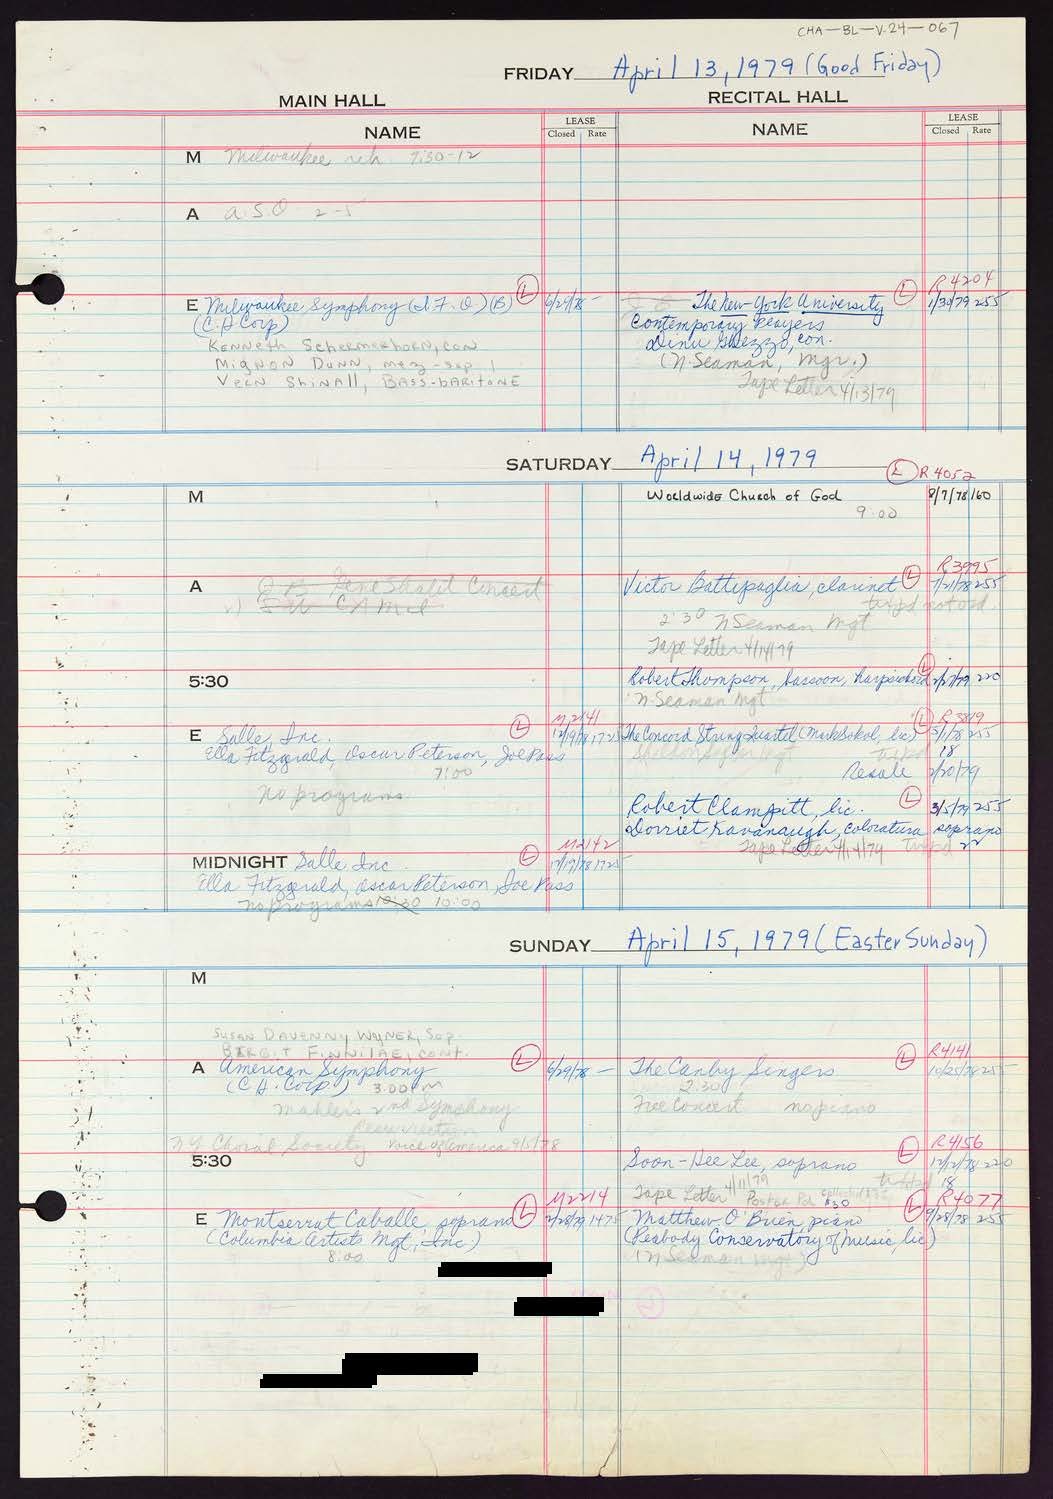 CHA-BL-V.24-067
FRIDAY April 13, 1979 (Good Friday)
MAIN HALL
RECITAL HALL
NAME
LEASE
Closed Rate
NAME
LEASE
Closed Rate
M Milwaukee reh. 9:30-12
A A.S.O 2-5
R4204
E Milwaukee Symphony (I.F.O)(B) L 6/29/78 -
The New York University L 1/30/79 255
(C.H Corp)
Contemporary Players
Kenneth Schermerhorn, con
Dinu Ghezzo, con.
Mignon Dunn, mez-sop
(N. Seaman, Mgr.)
Vern Shinall, Bass-baritone
Tape Letter 4/13/79
SATURDAY April 14, 1979
L R4052
M
Worldwide Church of God 8/7/78 160
9:00
R3995
A Gene Shalit Concert
Victor Battipaglia, clarinet L 7/21/78 255
2:30 N Seaman Mgt
Tape Letter 4/14/79
5:30
Robert Thompson, bassoon, harpsichord L 2/27/79 220
N. Seaman Mgt
M2141
R3819
E Salle, Inc. L 12/19/78 1725
The Concord String Quartet (Mark Sokol, lic) L 5/1/78 255
Ella Fitzgerald, Oscar Peterson, Joe Pass
18
7:00
Resale 2/20/79
No programs
Robert Clampitt, lic. L 3/5/79 255
Dorriet Kavanaugh, coloratura soprano
M2142
Tape Letter 4/14/79 22
MIDNIGHT Salle Inc L 12/19/78 1725
Ella Fitzgerald, Oscar Peterson, Joe Pass
no programs 10:30 10:00
SUNDAY April 15, 1979 (Easter Sunday)
M
Susan Davenny Wyner, Sop.
Birgit Finnilae, cont.
R4141
A American Symphony L 6/29/78 -
The Canby Singers L 10/25/78 255
(C.H. Corp) 3:00PM
2:30
Mahler's 2nd Symphony
Free Concert no piano
Resurrection
NY Choral Society Voice of America 9/5/78
R4156
5:30
Soon-Hee Lee, soprano L 12/12/78 220
Tape Letter 4/11/79 18
M2214
R4077
E Montserrat Caballe, soprano L 2/28/79 1475
Matthew O'Brien, piano L 9/28/78 255
(Columbia Artists Mgt, Inc.)
(Peabody Conservatory of Music, lic)
8:00
(N Seaman Mgt)